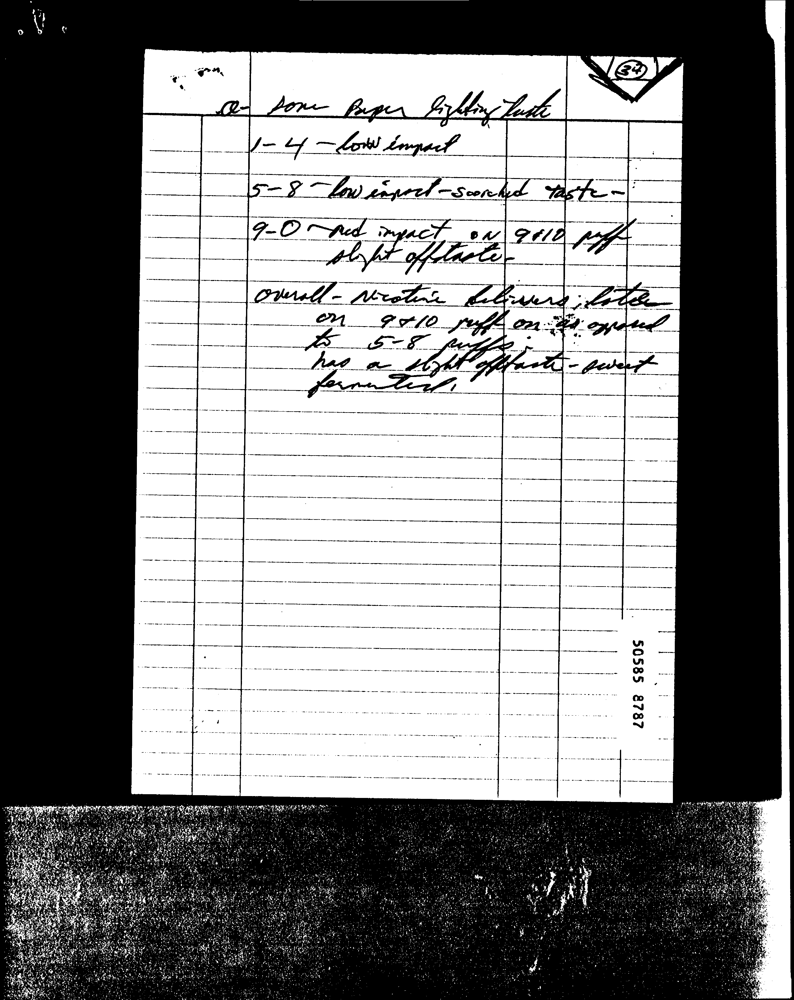 34
- some Paper lighting taste
1-4 - low impact
5-8 - low impact - scorched taste -
9-0 - med impact on 9+10 puff
slight offtaste -
overall - Nicotine delivers later
on 9+10 puff on as opposed
to 5-8 puffs;
has a slight offtaste - sweet
fermented.
50585 8787